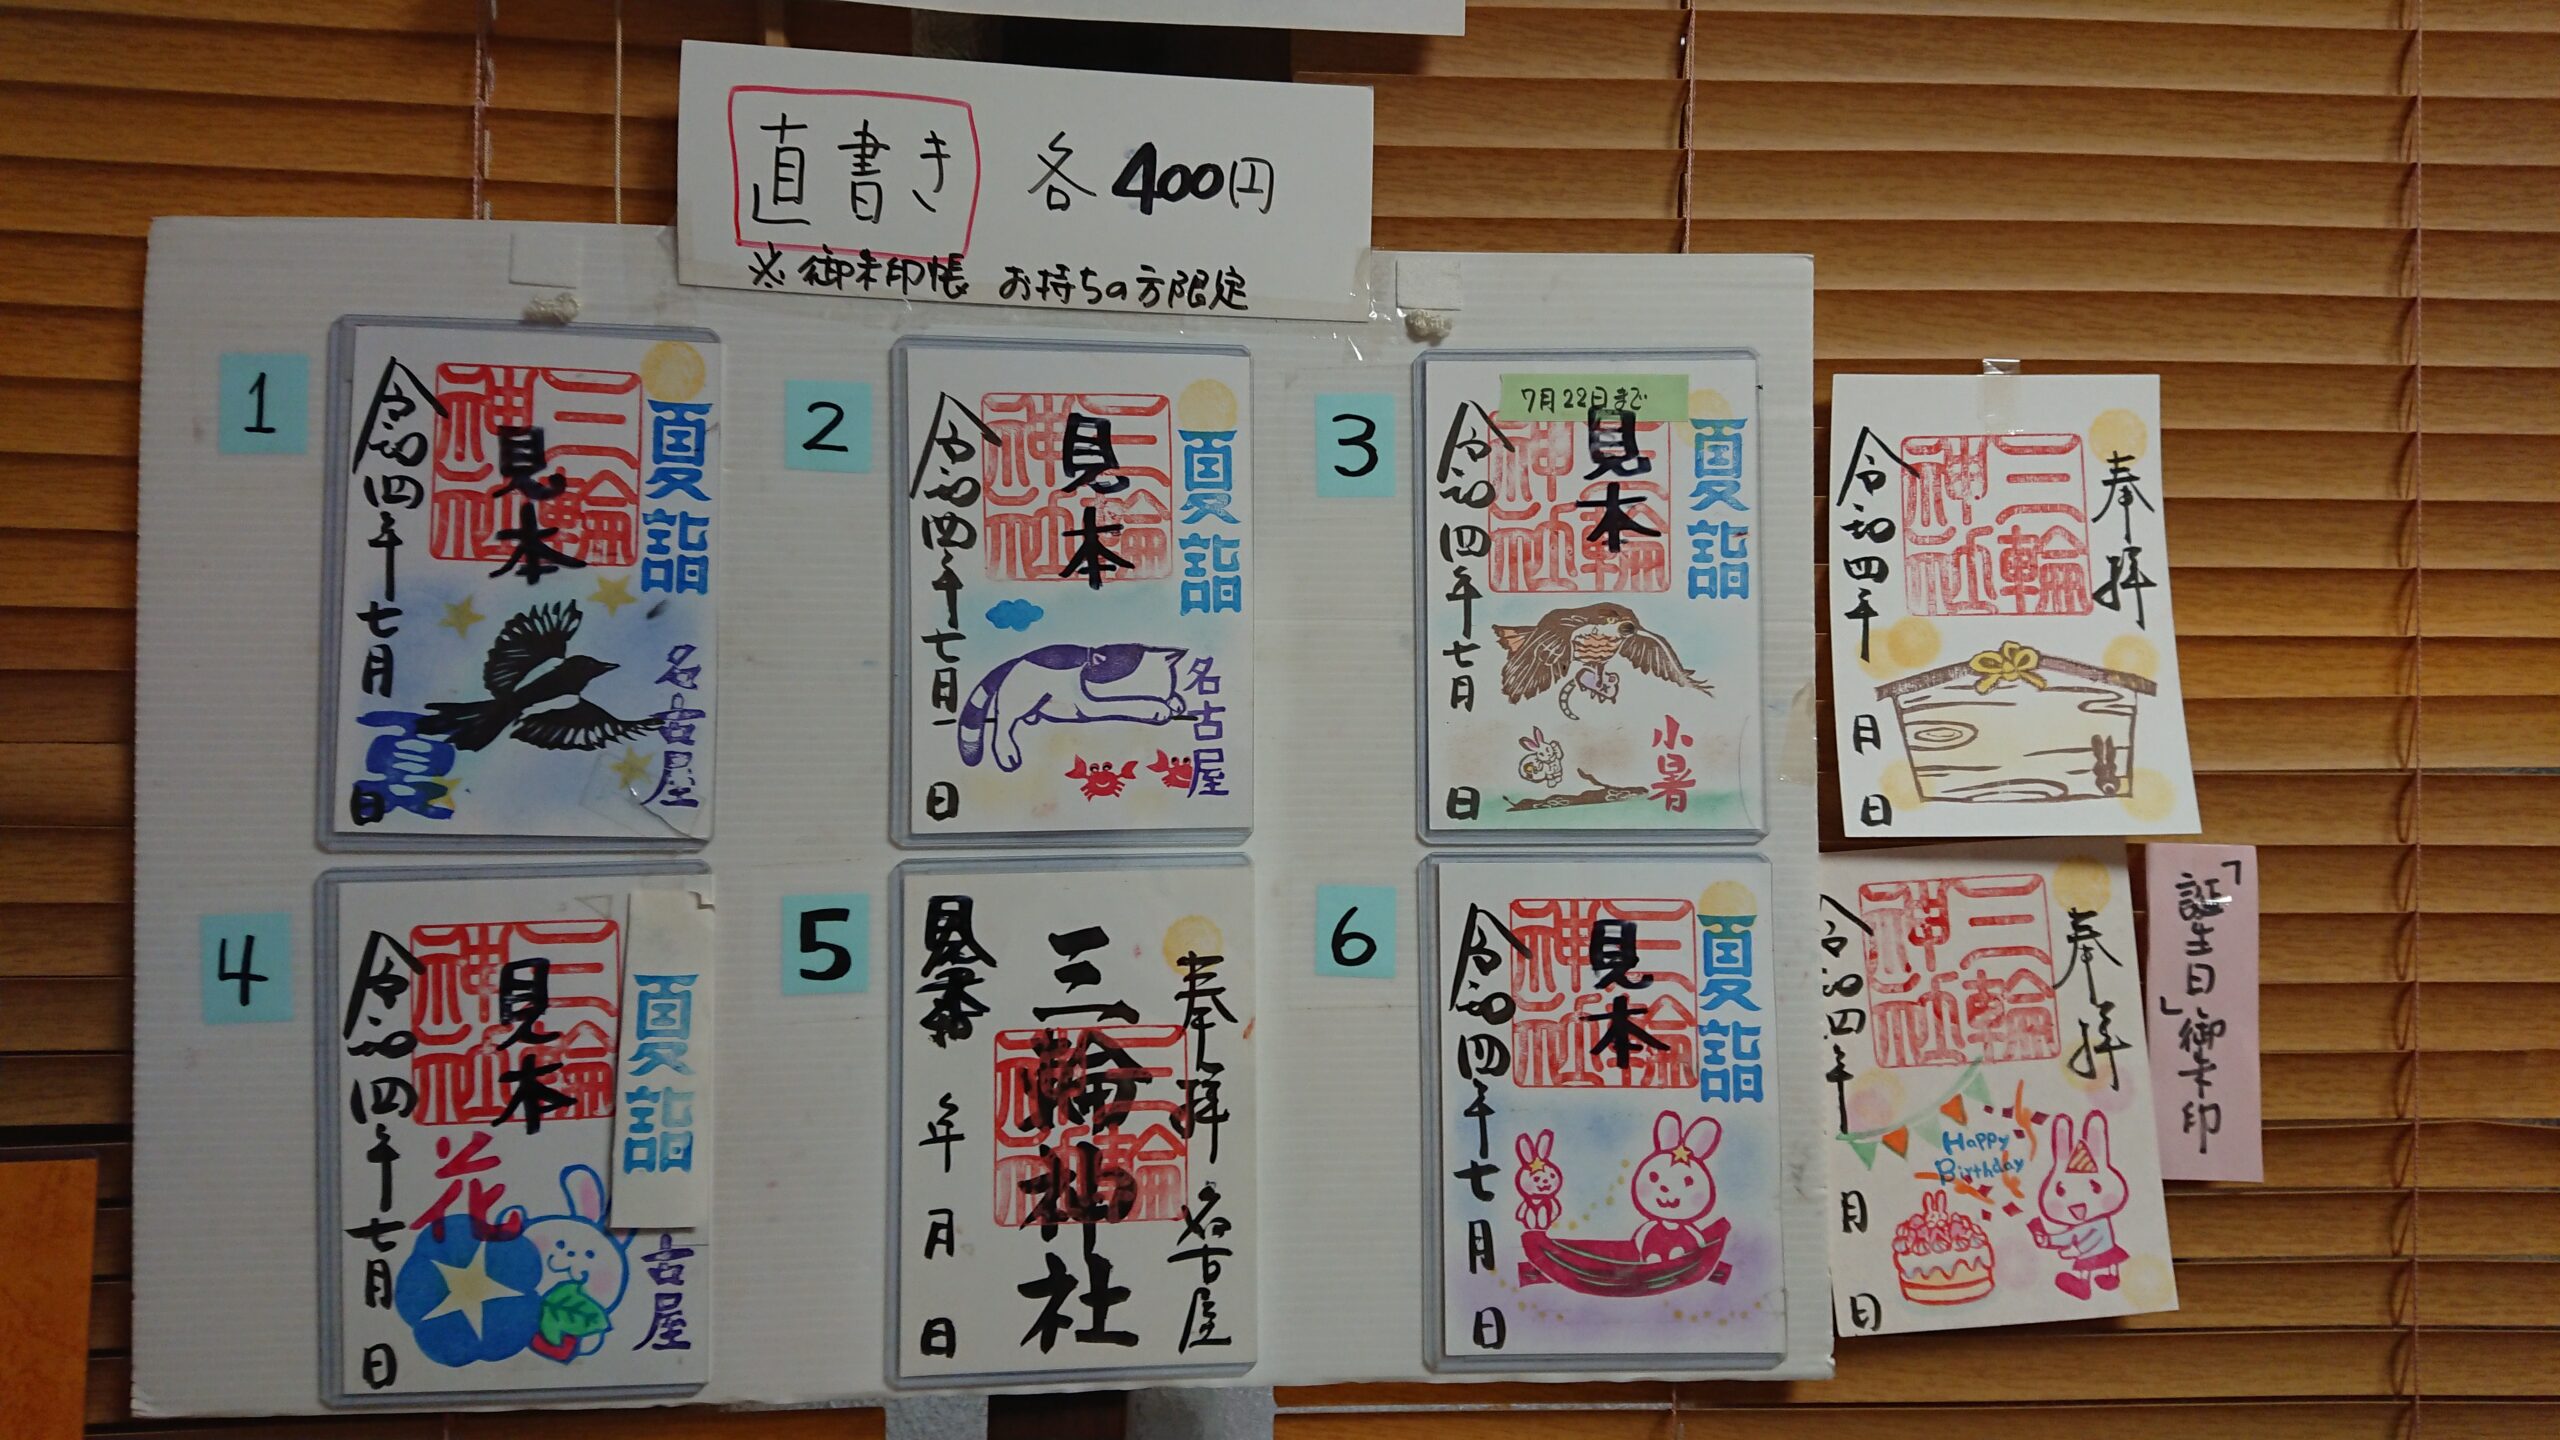 直書き 各400円
※御朱印帳 お持ちの方限定
1
夏詣
三輪神社
見本
令和四年七月 日
名古屋
夏
2
夏詣
三輪神社
見本
令和四年七月 日
名古屋
3
7月22日まで
夏詣
見本
令和四年七月 日
小暑
奉拝
三輪神社
令和四年 月 日
4
夏詣
三輪神社
見本
令和四年七月 日
花
古屋
5
奉拝 名古屋
三輪神社
三輪神社
年 月 日
6
夏詣
三輪神社
見本
令和四年七月 日
奉拝
三輪神社
令和四年 月 日
Happy
Birthday
「誕生日」御朱印